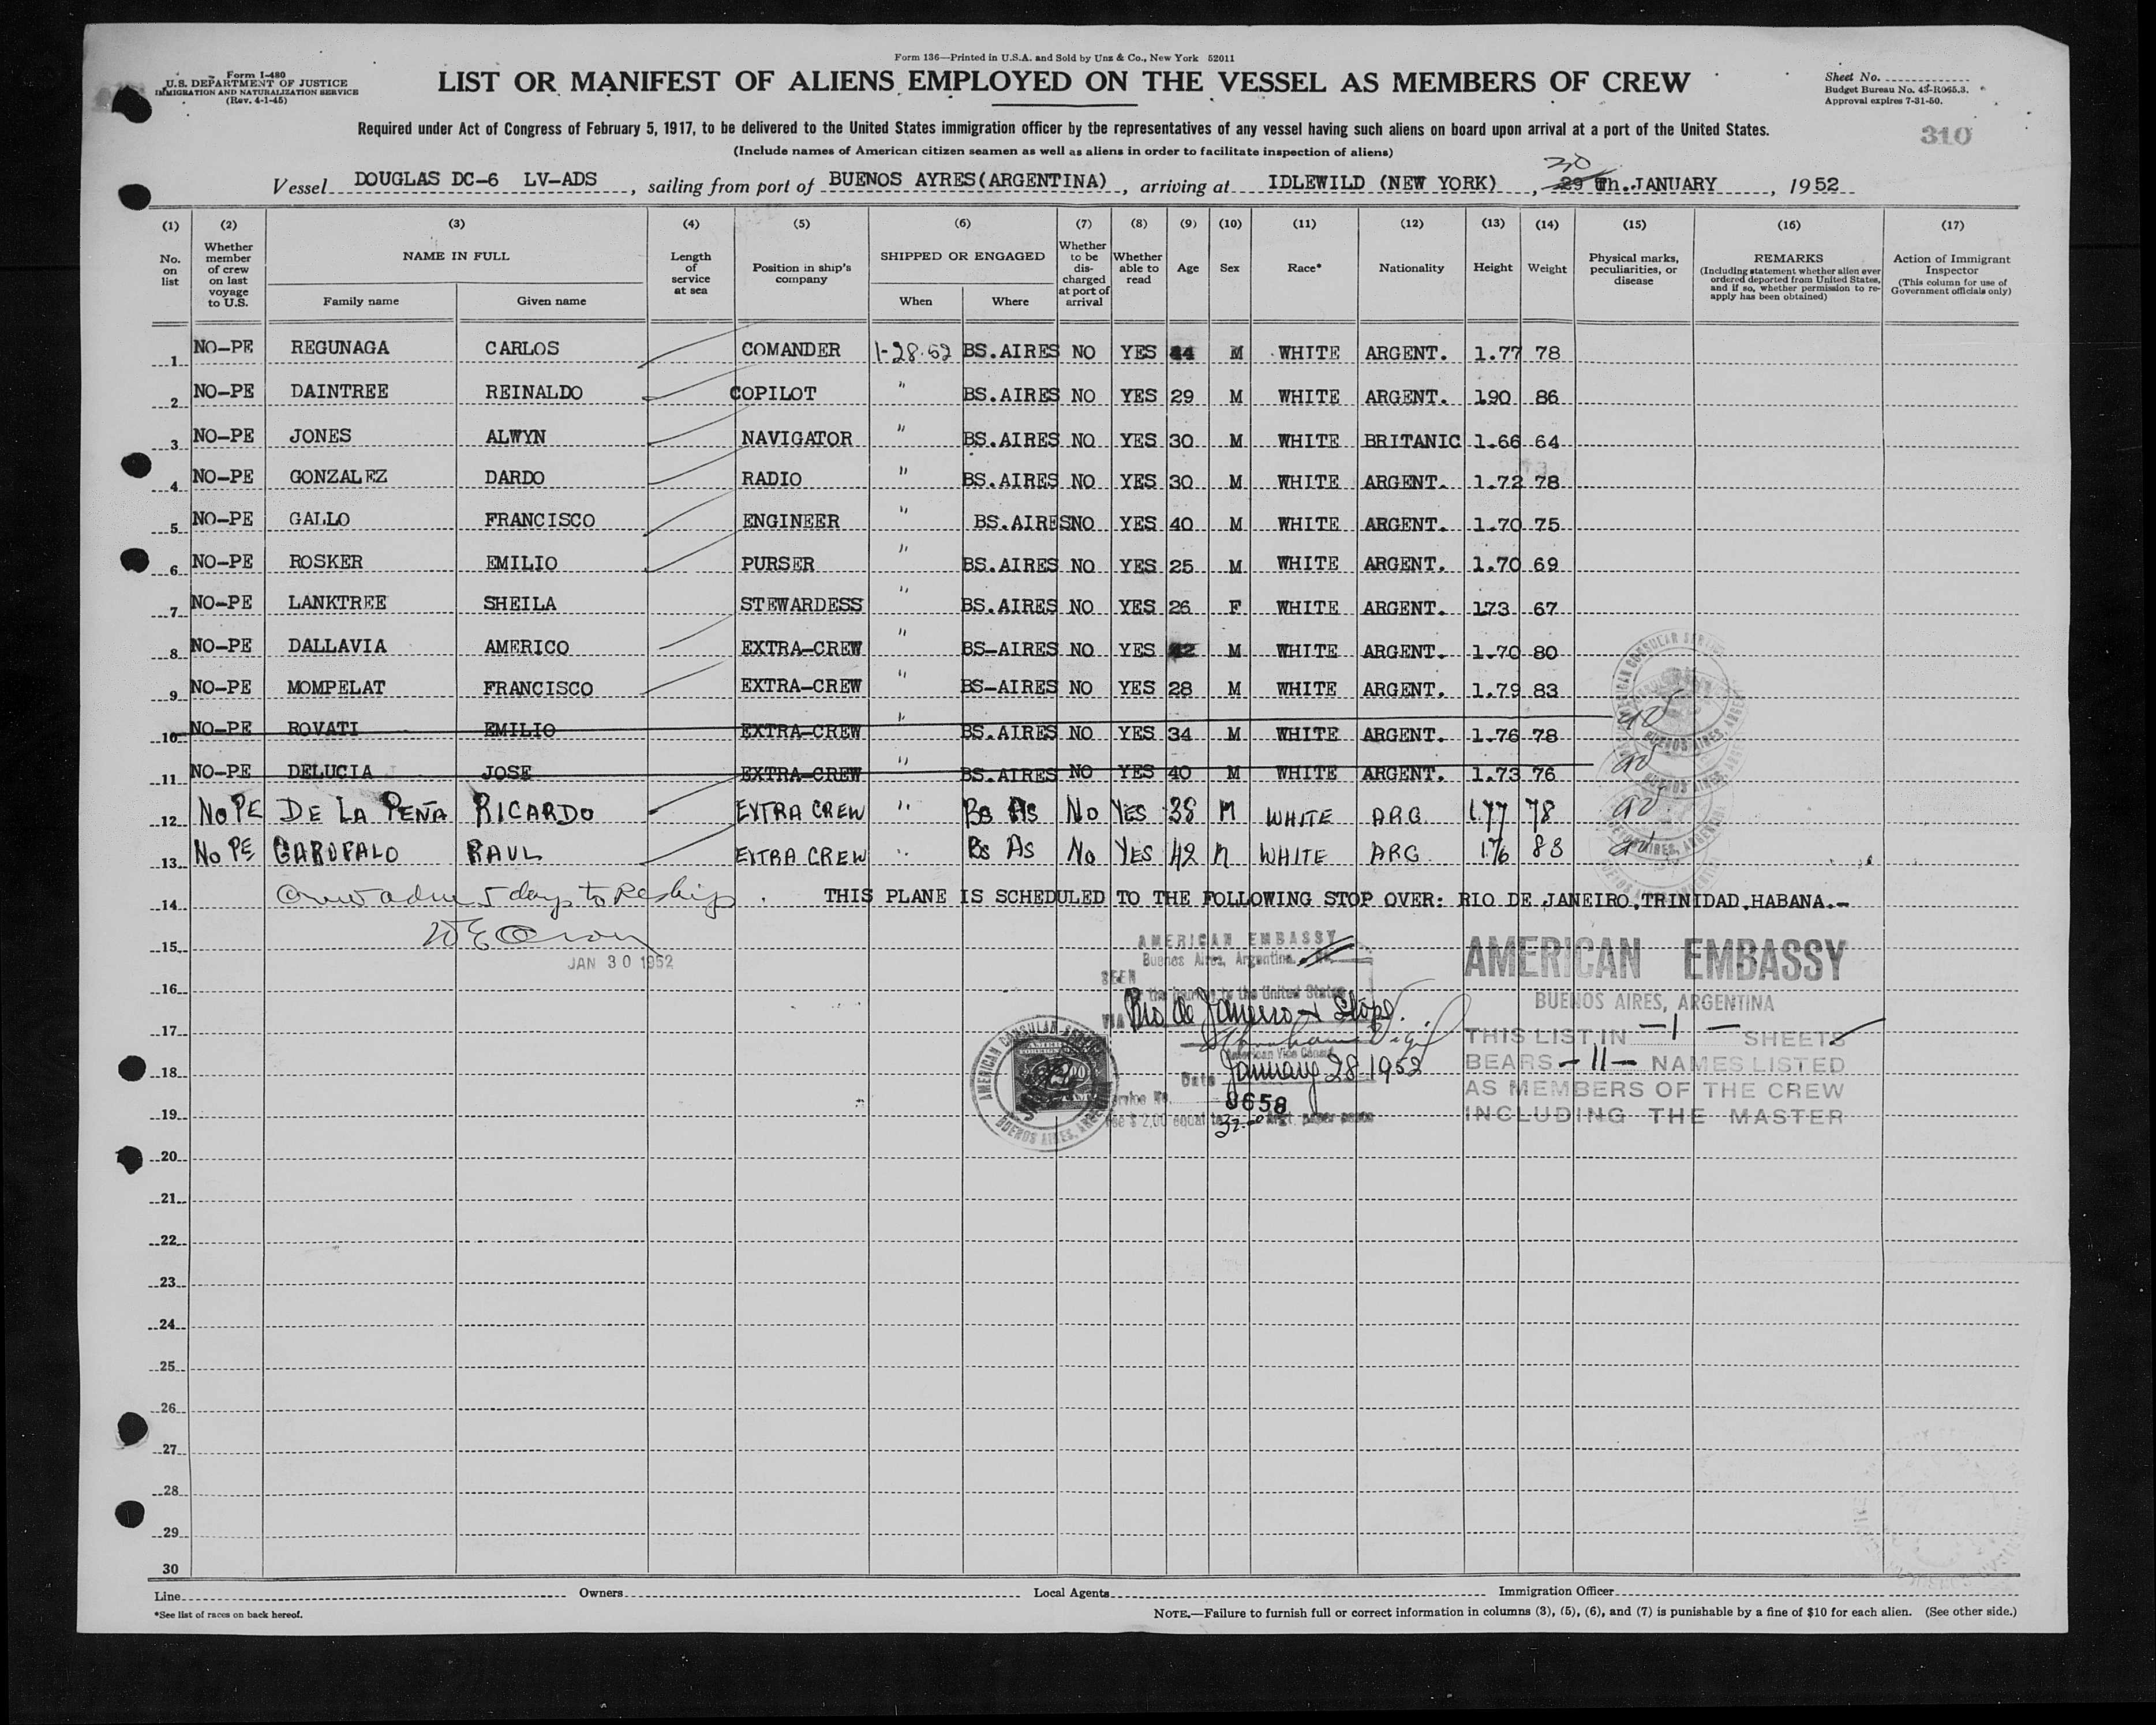 Form 136—Printed in U.S.A. and Sold by Unz & Co., New York 52011
Form I-480
U.S. DEPARTMENT OF JUSTICE
IMMIGRATION AND NATURALIZATION SERVICE
(Rev. 4-1-45)
LIST OR MANIFEST OF ALIENS EMPLOYED ON THE VESSEL AS MEMBERS OF CREW
Sheet No.
Budget Bureau No. 43-R065.3.
Approval expires 7-31-50.
Required under Act of Congress of February 5, 1917, to be delivered to the United States immigration officer by the representatives of any vessel having such aliens on board upon arrival at a port of the United States.
310
(Include names of American citizen seamen as well as aliens in order to facilitate inspection of aliens)
Vessel DOUGLAS DC-6 LV-ADS, sailing from port of BUENOS AYRES(ARGENTINA), arriving at IDLEWILD (NEW YORK), 30 29 th. JANUARY, 1952
(1) (2) (3) (4) (5) (6) (7) (8) (9) (10) (11) (12) (13) (14) (15) (16) (17)
No. on list
Whether member of crew on last voyage to U.S.
NAME IN FULL
Family name Given name
Length of service at sea
Position in ship's company
SHIPPED OR ENGAGED
When Where
Whether to be discharged at port of arrival
Whether able to read
Age Sex Race* Nationality Height Weight
Physical marks, peculiarities, or disease
REMARKS
(Including statement whether alien ever ordered deported from United States, and if so, whether permission to reapply has been obtained)
Action of Immigrant Inspector
(This column for use of Government officials only)
1 NO-PE REGUNAGA CARLOS COMANDER 1-28-52 BS.AIRES NO YES 44 M WHITE ARGENT. 1.77 78
2 NO-PE DAINTREE REINALDO COPILOT " BS.AIRES NO YES 29 M WHITE ARGENT. 190 86
3 NO-PE JONES ALWYN NAVIGATOR " BS.AIRES NO YES 30 M WHITE BRITANIC 1.66 64
4 NO-PE GONZALEZ DARDO RADIO " BS.AIRES NO YES 30 M WHITE ARGENT. 1.72 78
5 NO-PE GALLO FRANCISCO ENGINEER " BS.AIRES NO YES 40 M WHITE ARGENT. 1.70 75
6 NO-PE ROSKER EMILIO PURSER " BS.AIRES NO YES 25 M WHITE ARGENT. 1.70 69
7 NO-PE LANKTREE SHEILA STEWARDESS " BS.AIRES NO YES 26 F WHITE ARGENT. 173 67
8 NO-PE DALLAVIA AMERICO EXTRA-CREW " BS-AIRES NO YES 42 M WHITE ARGENT. 1.70 80
9 NO-PE MOMPELAT FRANCISCO EXTRA-CREW " BS-AIRES NO YES 28 M WHITE ARGENT. 1.79 83
10 NO-PE ROVATI EMILIO EXTRA-CREW " BS.AIRES NO YES 34 M WHITE ARGENT. 1.76 78
11 NO-PE DELUCIA JOSE EXTRA-CREW " BS.AIRES NO YES 40 M WHITE ARGENT. 1.73 76
12 NO PE DE LA PEÑA RICARDO EXTRA CREW " Bs As No YES 38 M WHITE ARG 1.77 78
13 No PE GAROFALO RAUL EXTRA CREW " Bs As No YES 42 M WHITE ARG 176 83
14 Crew adm 5 days to Reship THIS PLANE IS SCHEDULED TO THE FOLLOWING STOP OVER: RIO DE JANEIRO,TRINIDAD,HABANA.-
15
JAN 30 1952
AMERICAN EMBASSY
Buenos Aires, Argentina
SEEN
the journey to the United States
VIA Rio de Janeiro & Stops.
American Vice Consul
Date January 28 1952
Service No. 8658
Fee $ 2,00 equal to 32.00 Argt. paper pesos
AMERICAN CONSULAR SERVICE
BUENOS AIRES, ARGENTINA
AMERICAN EMBASSY
BUENOS AIRES, ARGENTINA
THIS LIST IN -1- SHEETS
BEARS -11- NAMES LISTED
AS MEMBERS OF THE CREW
INCLUDING THE MASTER
16
17
18
19
20
21
22
23
24
25
26
27
28
29
30
Line Owners Local Agents Immigration Officer
*See list of races on back hereof.
NOTE.—Failure to furnish full or correct information in columns (3), (5), (6), and (7) is punishable by a fine of $10 for each alien. (See other side.)